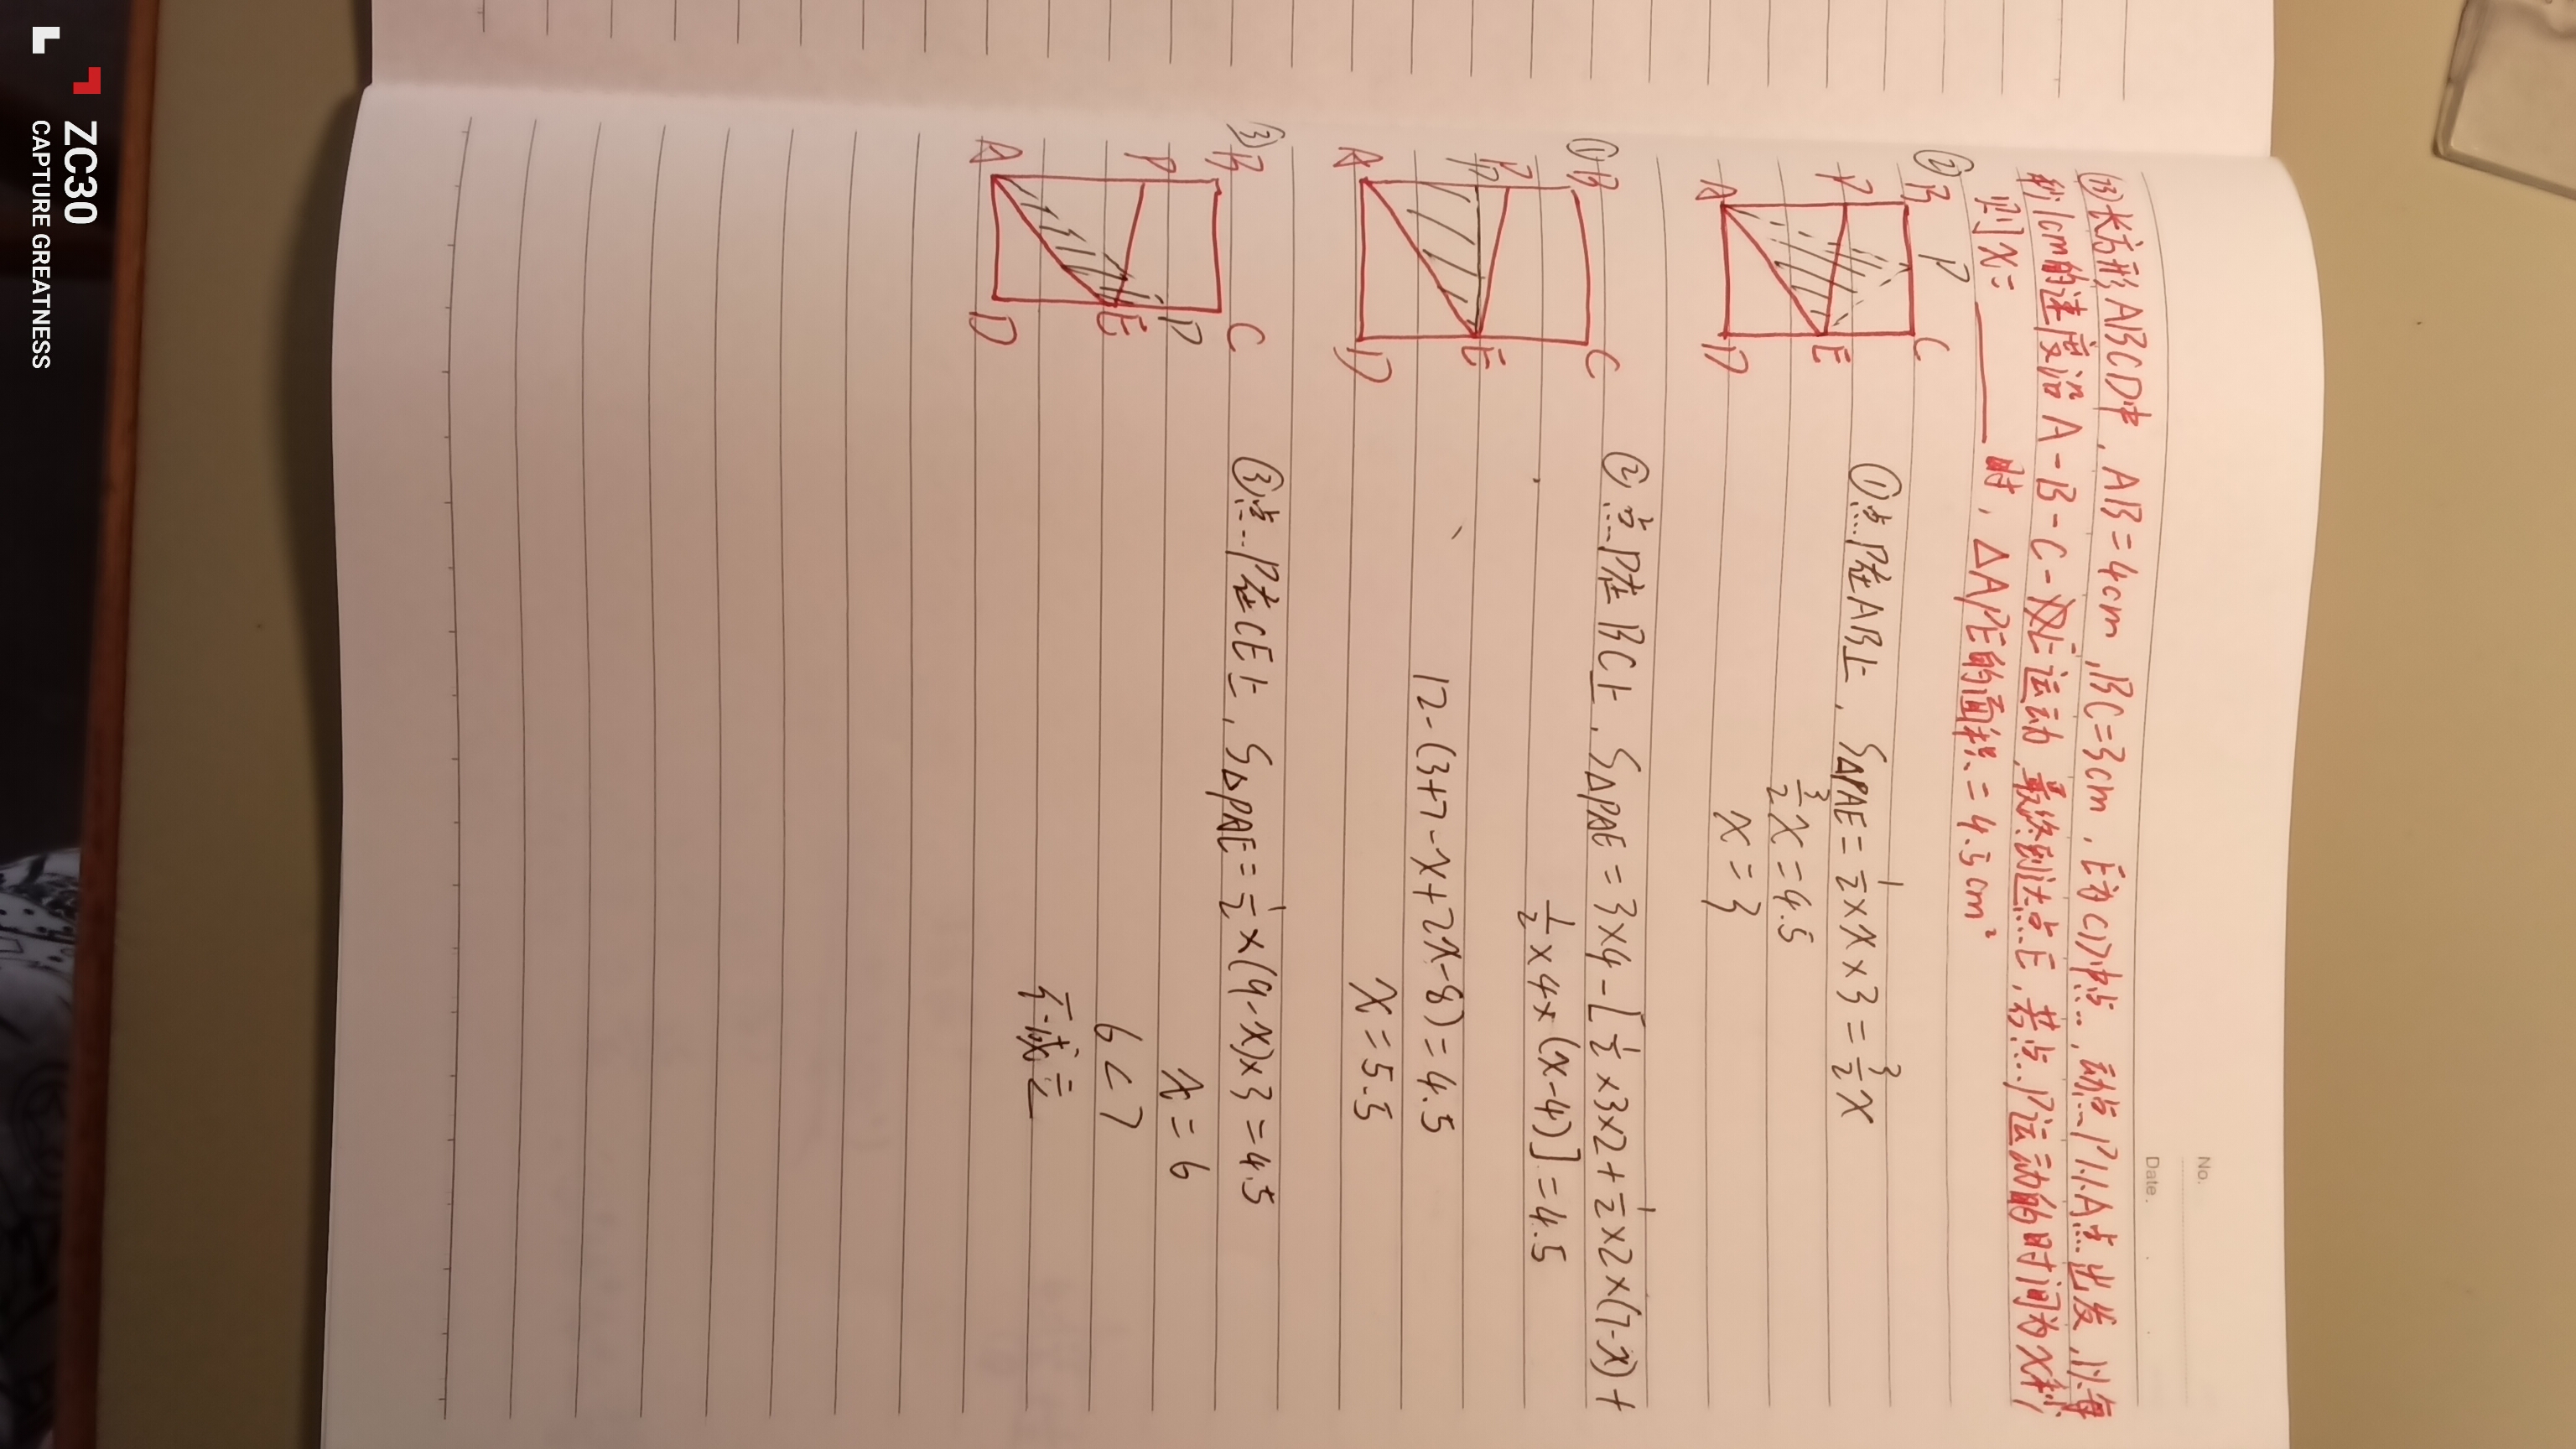 No.
Date.
⑬长方形ABCD中，AB=4cm，BC=3cm，E为CD中点，动点P从A点出发，以每
秒1cm的速度沿A-B-C-E运动，最终到达点E，若点P运动的时间为x秒，
则x=______时，△APE的面积=4.5cm²
②
B P C
P E
A D
①点P在AB上，S△PAE=½×x×3=3/2x
3/2x=4.5
x=3
①
B C
P E
A D
②点P在BC上，S△PAE=3×4-[½×3×2+½×2×(7-x)+
½×4×(x-4)]=4.5
12-(3+7-x+2x-8)=4.5
x=5.5
③
B C
P P
E
A D
③点P在CE上，S△PAE=½×(9-x)×3=4.5
x=6
6<7
不成立
ZC30
CAPTURE GREATNESS